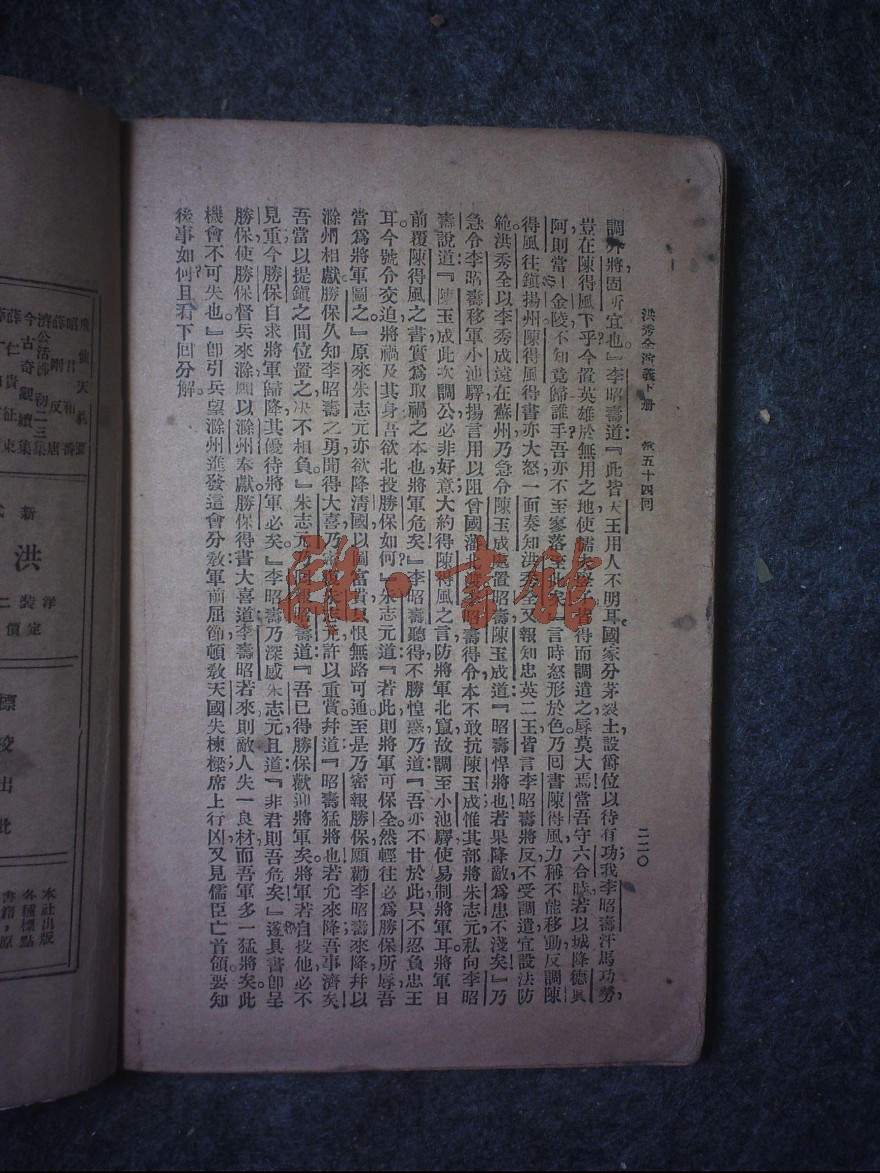 洪秀全演義下冊　第五十四回
二二〇
調外將固所宜也』李昭壽道：『此皆天王用人不明耳。國家分茅裂土，設爵位以待有功；我李昭壽汗馬功勞，
豈在陳得風下乎？今置英雄於無用之地，使儒夫豎子，若得而調遣之，辱莫大焉！當吾守六合時，若以城降德興
阿，則當日金陵，不知竟歸誰手？吾亦不至寥落至此矣！』言時怒形於色。乃回書陳得風，力稱不能移動，反調陳
得風往鎮揚州。陳得風得書亦大怒，一面奏知洪秀全，又報知忠英二王，皆言李昭壽將反，不受調遣，宜設法防
範。洪秀全以李秀成遠在蘇州，乃急令陳玉成處置昭壽。陳玉成道：『昭壽悍將也！若果降敵，爲患不淺矣！』乃
急令李昭壽移軍小池驛，揚言用以阻曾國藩。李昭壽得令，本不敢抗陳玉成，惟其部將朱志元，私向李昭
壽說道：『陳玉成此次調公，必非好意，大約得陳得風之言，防將軍北竄，故調至小池驛，使易制將軍耳。將軍日
前覆陳得風之書，實爲取禍之本也。將軍危矣！』李昭壽聽得，不勝惶惑，乃道：『吾亦不甘於此，只不忍負忠王
耳。今號令交迫，將禍及其身，吾欲北投勝保如何？』朱志元道：『若此則將軍可保全。然輕往必爲勝保所辱，吾
當爲將軍圖之。』原來朱志元亦欲降清國，以圖富貴，只恨無路可通。至是乃密報勝保，願勸李昭壽來降，并以
滁州相獻。勝保久知李昭壽之勇，聞得大喜，乃密復朱志元，許以重賞，并道：『昭壽猛將也，若允來降，吾事濟矣！
吾當以提鎮之間位置之，决不相負。』朱志元乃回李昭壽道：『吾已得勝保歡迎將軍矣。將軍若自投他，必不
見重；今勝保自求將軍歸降，其優待將軍必矣。』李昭壽乃深感朱志元，且道：『非君則吾危矣！』遂具書卽呈
勝保，使勝保督兵來滁，願以滁州奉獻。勝保得書大喜道：李壽昭若來，則敵人失一良材，而吾軍多一猛將矣。此
機會不可失也。』卽引兵望滁州進發。這會分敎：軍前屈節，頓敎天國失棟樑；席上行凶，又見儒臣亡首領。要知
後事如何，且看下回分解。
飛仙天豹
昭君和番
薛剛反唐
濟公活佛初二三集
今古奇觀續集
薛仁貴征東
新
洪
洋裝二
定價
標
校
出
批
本社出版
各種標點
書籍，原